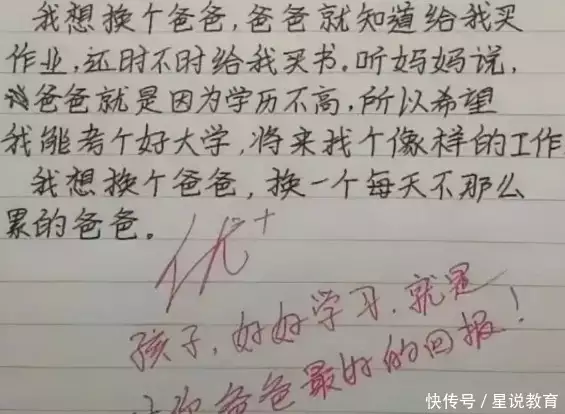 我想换个爸爸,爸爸就知道给我买
作业,还时不时给我买书。听妈妈说,
爸爸就是因为学历不高,所以希望
我能考个好大学,将来找个像样的工作
我想换个爸爸,换一个每天不那么
累的爸爸。
优+
孩子,好好学习,就是
爸爸最好的回报!
快传号/星说教育